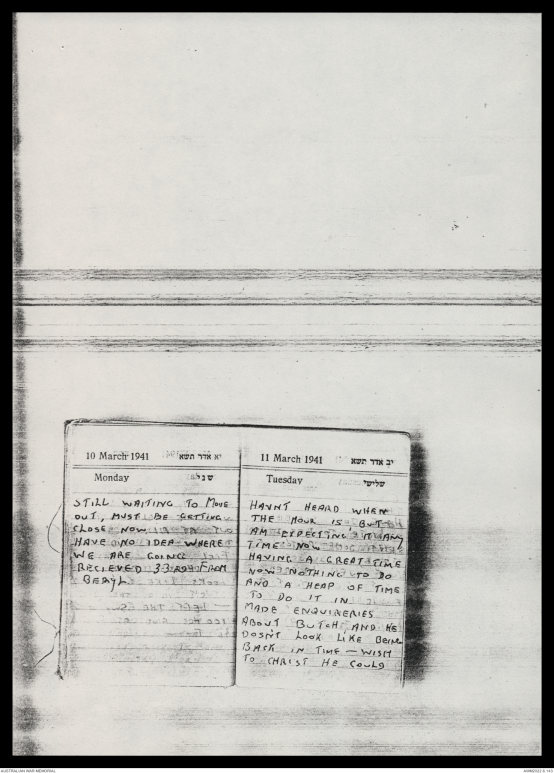 10 March 1941 יא אדר תשא
Monday שני
STILL WAITING TO MOVE
OUT, MUST BE GETTING
CLOSE NOW
HAVE NO IDEA WHERE
WE ARE GOING
RECIEVED FROM
BERYL
11 March 1941 יב אדר תשא
Tuesday שלישי
HAVNT HEARD WHEN
THE HOUR IS, BUT
AM EXPECTING IT ANY
TIME NOW
HAVING A GREAT TIME
NOW NOTHING TO DO
AND A HEAP OF TIME
TO DO IT IN
MADE ENQUIRERIES
ABOUT BUTCH AND HE
DOSNT LOOK LIKE BEING
BACK IN TIME — WISH
TO CHRIST HE COULD
AUSTRALIAN WAR MEMORIAL